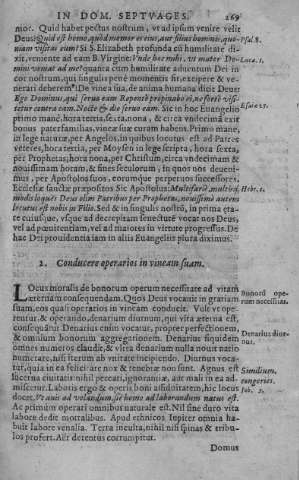 IN DOM. SEPTVAGES. 269
mor. Quid habet pectus nostrum, vt ad ipsum venire velit
Deus? Quid est homo, quòd memor es eius, aut filius hominis, quo- Psal. 8.
niam visitas eum? Si S. Elizabeth profunda cū humilitate di-
xit, veniente ad eam B. Virgine: Vnde hoc mihi, vt mater Do- Luca. 1.
mini veniat ad me? quanca cum humilitate aduentum Dei in
cor nostrum, qui singulis penè momentis fit, excipere & ve-
nerari deberem? De vinea sua, de anima humana dicit Deus:
Ego Dominus, qui seruo eam Repentè propinabo ei, ne fortè visi- Esaiæ 27.
tetur contra eam. Nocte & die seruo eam. Sic in hoc Euangelio
primo manè, hora tertia, sexta, nona, & circa vndecimã exit
bonus paterfamilias, vineæ suæ curam habens. Primo manè,
in lege naturæ, per Angelos, in quibus locutus est ad Patres
veteres, hora tertia, per Moysen in lege scripta, hora sexta,
per Prophetas, hora nona, per Christum, circa vndecimam &
nouissimam horam, & fines seculorum, in quos nos deueni-
mus, per Apostolos suos, eorumque perpetuo successores,
Ecclesiæ sanctæ præpositos Sic Apostolus: Multifariè, multisq; Hebr. 1.
modis loquẽs Deus olim Patribus per Prophetas, nouissimè autem
locutus est nobis in Filio. Sed & in singulis nostrũ, in prima æta-
te cuiusque, vsque ad decrepitam senectutẽ vocat nos Deus,
vel ad pœnitentiam, vel ad maiores in virtute progressus. De
hac Dei prouidentia iam in aliis Euangelis plura diximus.
2. Conducere operarios in vineam suam.
LOcus moralis de bonorum operum necessitate ad vitam Bonorũ ope-
æternam consequendam. Quos Deus vocauit in gratiam rum necessitas.
suam, eos quasi operarios in vineam conducit. Volt vt ope-
rentur, & operando, denarium diurnum, qui vita æterna est,
consequãtur Denarius enim vocatur, propter perfectionem, Denarius diur-
& omnium bonorum aggregationem. Denarius siquidem nus.
omnes numeros claudit, & vltra denarium nulla nouit natio
numerare, nisi iterum ab vnitate incipiendo. Diurnus voca-
tur, quia in ea felicitate nox & tenebræ non sunt. Agnus est Similium,
lucerna ciuitatis nihil peccati, ignorantiæ, aut mali in ea ad- congeries.
miscetur. Laboris ergo & operis boni assiduitatem, hic locus Iob. 5.
docet, Vt auis ad volandum, sic homo ad laborandum natus est.
Ac primùm operari omnibus naturale est. Nil sine duro vita
labore dedit mortalibus. Apud ethnicos Iupiter omnia ha-
buit labore venalia. Terra inculta, nihil nisi spinas & tribu-
los profert. Aër detentus corrumpitur.
Domus